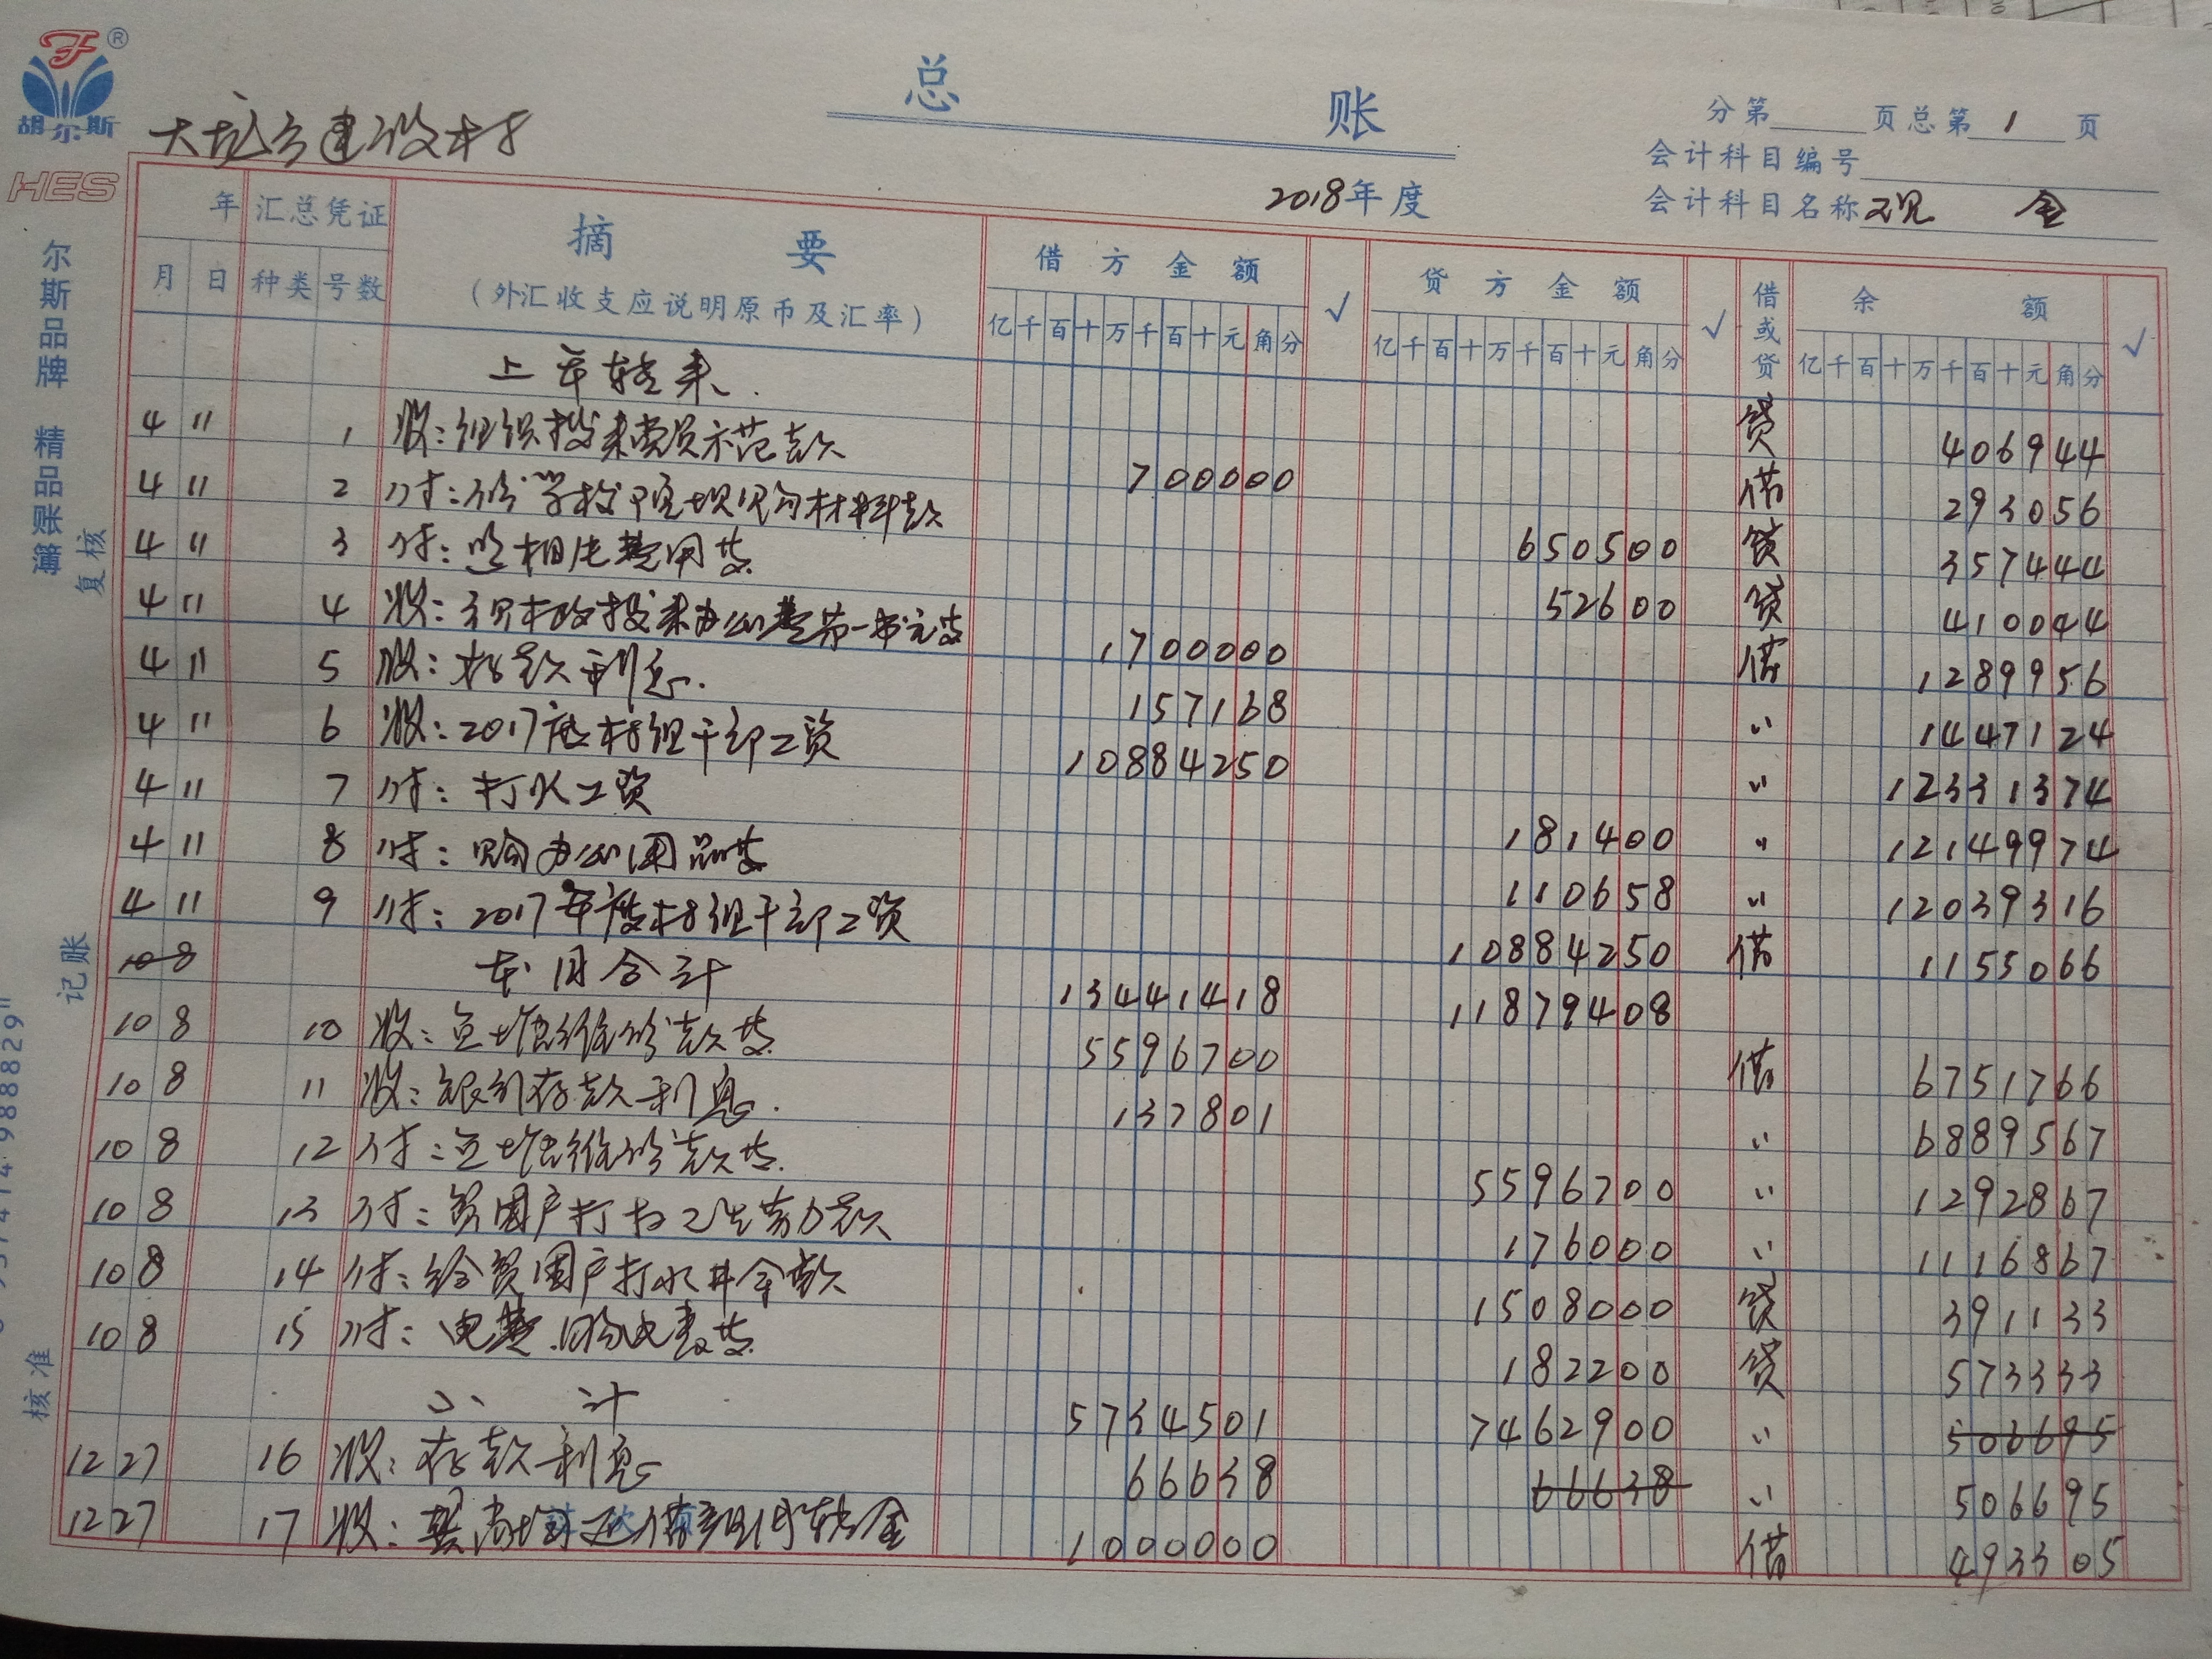 胡尔斯
HES
总 账
大坑乡建设村
分第 页总第 1 页
会计科目编号
会计科目名称 现 金
2018年度
尔斯品牌 精品账簿
复核
记账
核准
年 汇总凭证 摘 要 借方金额 √ 贷方金额 √ 借或贷 余 额 √
月 日 种类 号数 (外汇收支应说明原币及汇率) 亿千百十万千百十元角分 亿千百十万千百十元角分 亿千百十万千百十元角分
上年转来. 贷 406944
4 11 1 收:组织拨来党员示范款 700000 借 293056
4 11 2 付: 材料款 650500 贷 357444
4 11 3 付:照相电费用支 52600 贷 410044
4 11 4 收: 拨来办公费 1700000 借 1289956
4 11 5 收:存款利息. 157168 〃 1447124
4 11 6 收:2017度村组干部工资 10884250 〃 12331374
4 11 7 付:打水工资 181400 〃 12149974
4 11 8 付:购办公用品支 110658 〃 12039316
4 11 9 付:2017年度村组干部工资 10884250 借 1155066
10 8 本月合计 13441418 11879408
10 8 10 收: 维修款支 5596700 借 6751766
10 8 11 收:银行存款利息. 137801 〃 6889567
10 8 12 付: 维修款支. 5596700 〃 1292867
10 8 13 付:贫困户打扫卫生劳力款 176000 〃 1116867
10 8 14 付:给贫困户打水井 款 1508000 贷 391133
10 8 15 付:电费.购电表支 182200 贷 573333
小 计 5734501 7462900 〃 506695
12 27 16 收:存款利息 66638 66638 〃 506695
12 27 17 收: 金 1000000 借 493305